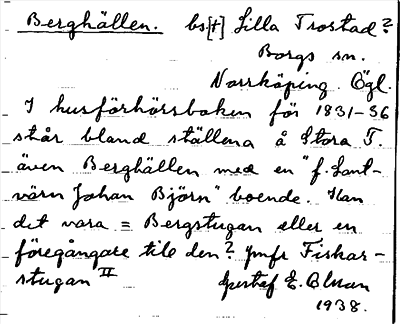 Berghällen. bs.[+] Lilla Trostad?
Borgs sn.
Norrköping. Ögl.
I husförhörsboken för 1831-36
står bland ställena å Stora T.
även Berghällen med en "f. Lant-
värn Johan Björn" boende. Kan
det vara = Bergstugan eller en
föregångare till den? Jmfr Fiskar-
stugan II
Gustaf E. Blman
1938.